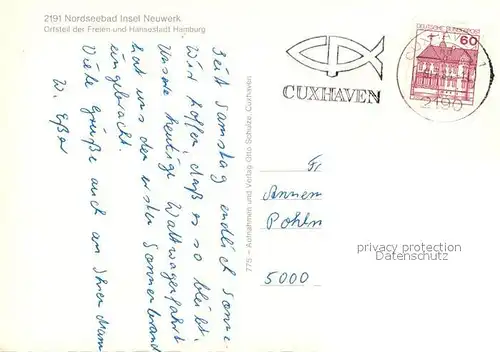 2191 Nordseebad Insel Neuwerk
Ortsteil der Freien und Hansestadt Hamburg
Seit Samstag endlich Sonne.
Wir hoffen, daß es so bleibt.
Unsere heutige Wattwagenfahrt
hat uns den ersten Sonnenbrand
eingebracht.
Viele Grüße auch an Ihren Mann
W. Eßer
775 – Aufnahmen und Verlag Otto Schulze, Cuxhaven
CUXHAVEN
DEUTSCHE BUNDESPOST
60
2190
Fr
Annem
Pohlm
5000
privacy protection
Datenschutz